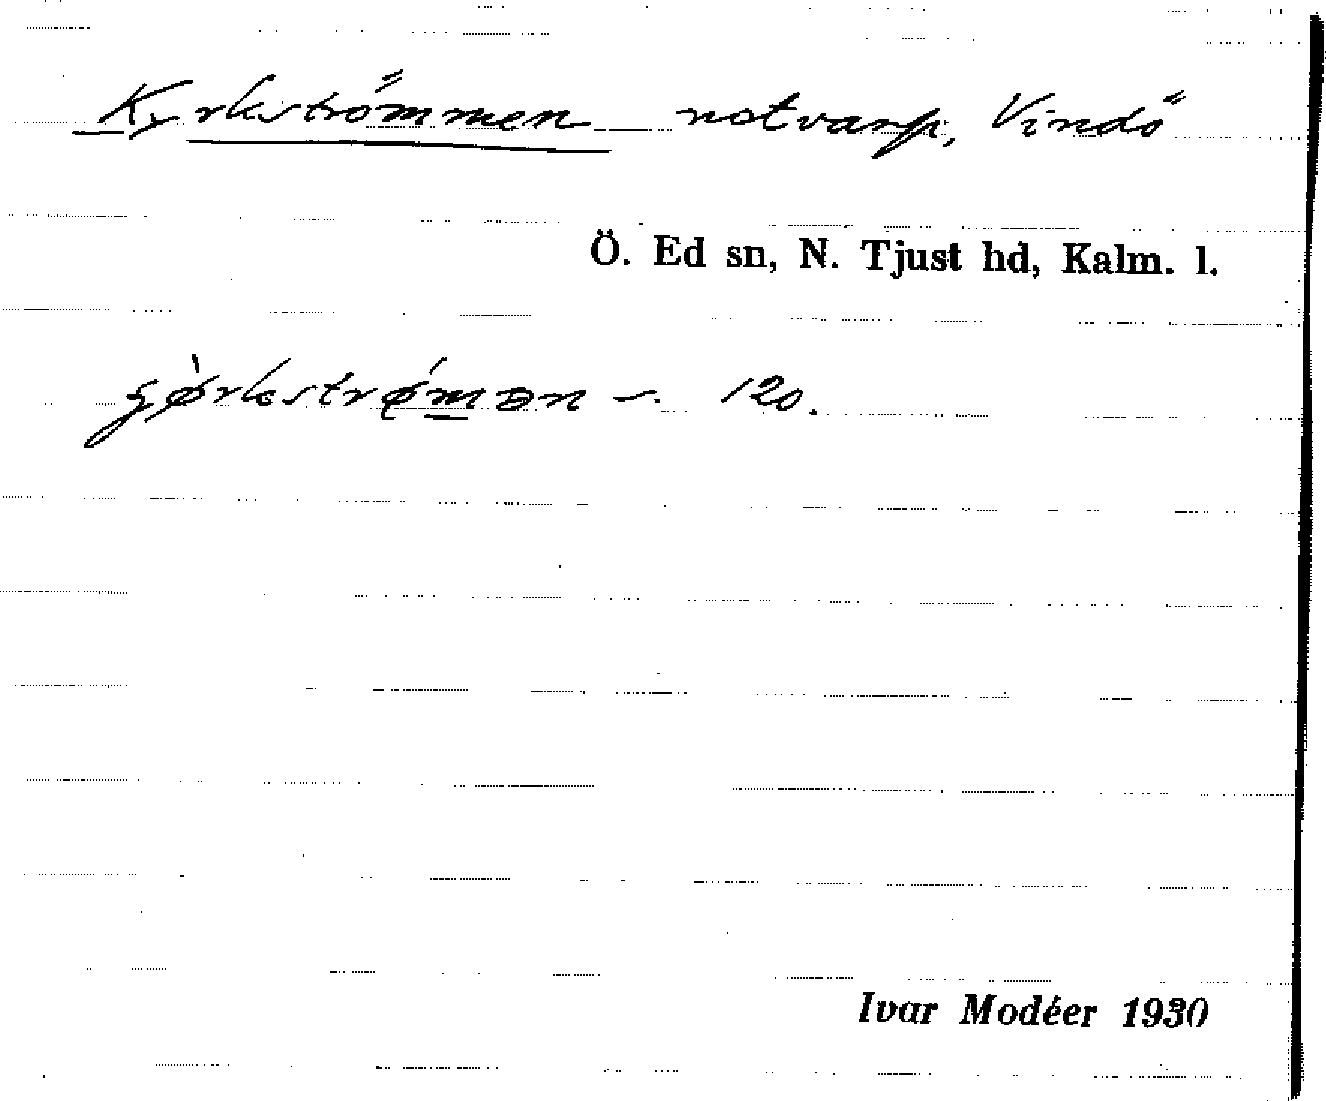 Kyrkströmmen notvarp, Vindö
Ö. Ed sn, N. Tjust hd, Kalm. l.
120.
Ivar Modéer 1930